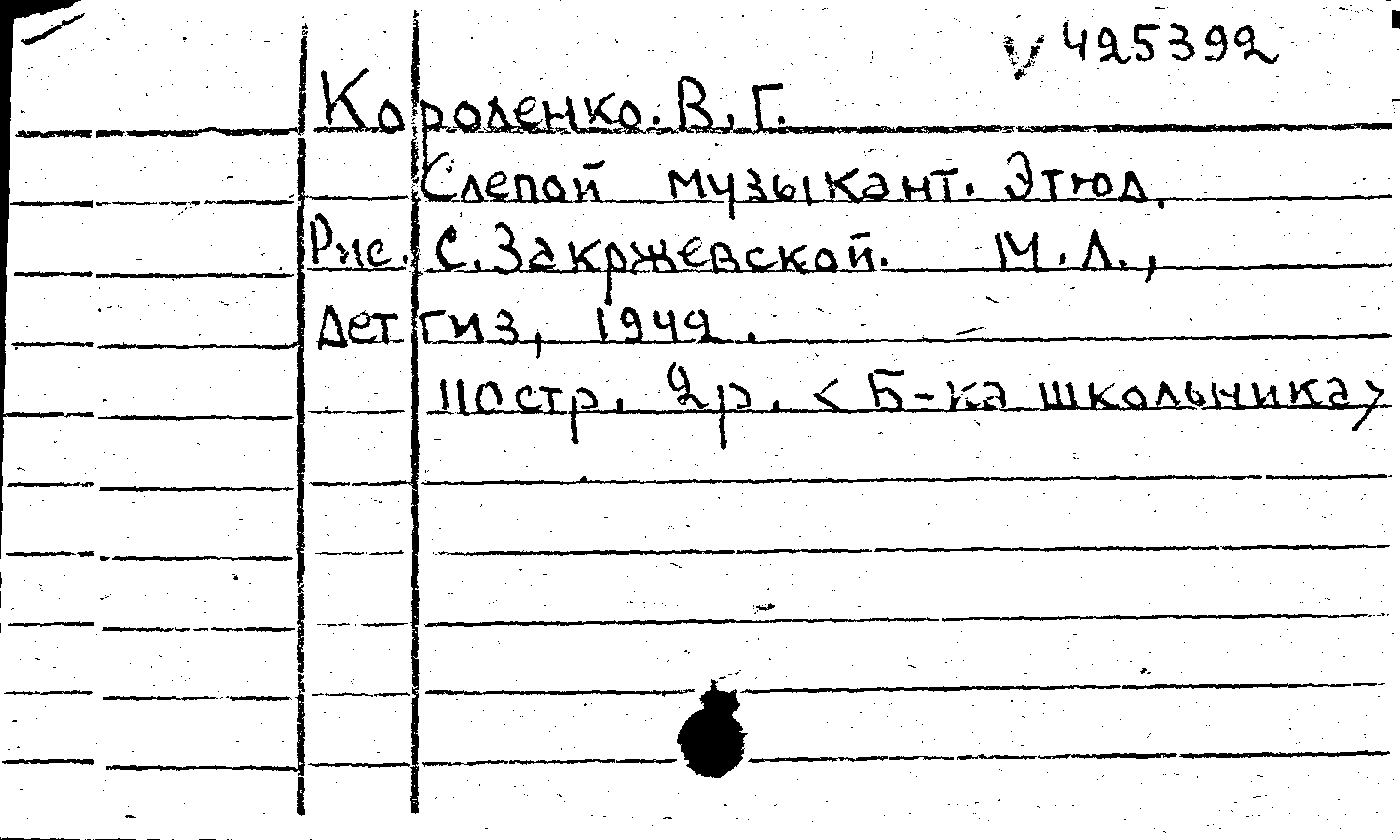 V 425392
Короленко. В. Г.
Слепой музыкант. Этюд.
Рис. С. Закржевской. М. Л.,
Детгиз, 1949.
110стр. 2р. <Б-ка школьника>